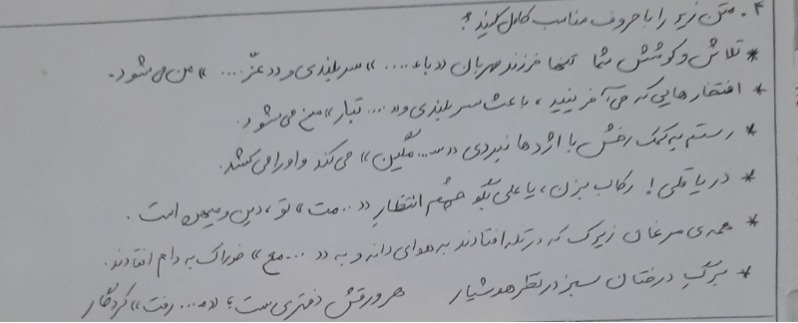 ۴. متن زیر را با حروف مناسب کامل کنید؟
* تلاش و کوشش شما تنها فرزند مهربان «باء.....» سربلندی و «عزّ....» من می شود.
* افتخارهایی که می آفرینید، باعث سربلندی و «.... تبار» من می شود.
* رستم به کمک رخش با اژدها نبردی «س...مگین» می کند و او را می کشد.
* دریاقلی! رکاب بزن، یا علی بگو چشم انتظار «...مت» تو، دین و میهن است.
* همه ی مرغان زیرک که در تله افتادند به هوای دانه و به «....مع» خوراک به دام افتادند.
* برگ درختان سبز در نظر هوشیار هر ورقش دفتری ست؛ «م....رفت» کردگار